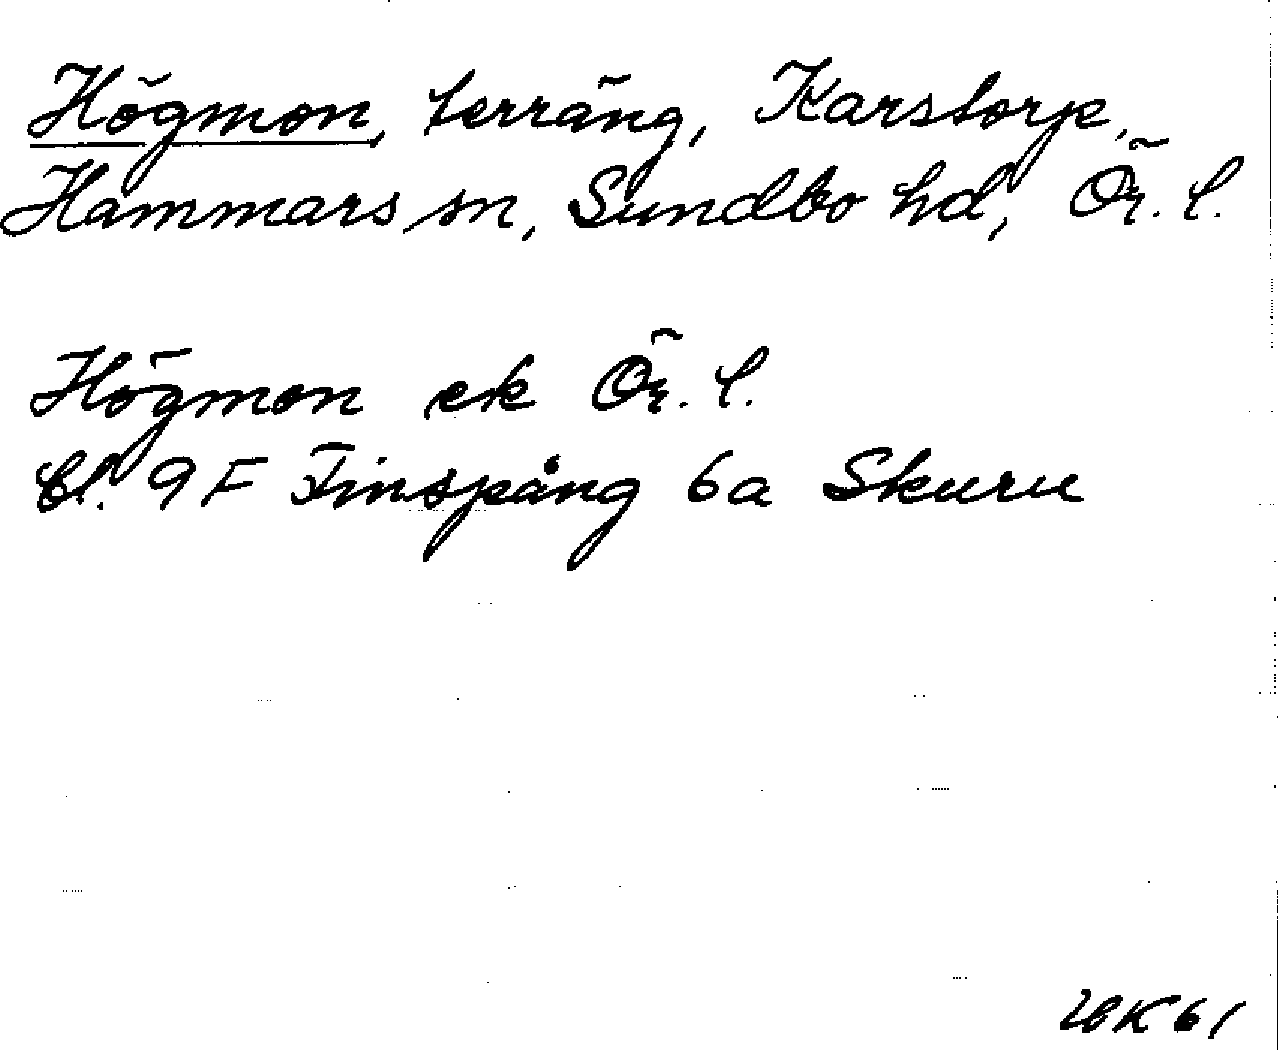 Högmon, terräng, Karstorp,
Hammars sn, Sundbo hd, Ör. l.
Högmon ek Ör. l.
bl. 9 F Finspång 6a Skuru
61